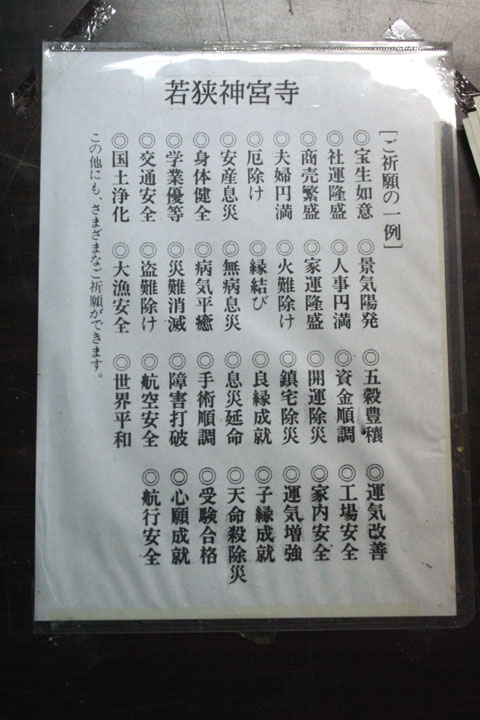 若狭神宮寺
[ご祈願の一例]
◎宝生如意 ◎景気陽発 ◎五穀豊穣 ◎運気改善
◎社運隆盛 ◎人事円満 ◎資金順調 ◎工場安全
◎商売繁盛 ◎家運隆盛 ◎開運除災 ◎家内安全
◎夫婦円満 ◎火難除け ◎鎮宅除災 ◎運気増強
◎厄除け ◎縁結び ◎良縁成就 ◎子縁成就
◎安産息災 ◎無病息災 ◎息災延命 ◎天命殺除災
◎身体健全 ◎病気平癒 ◎手術順調 ◎受験合格
◎学業優等 ◎災難消滅 ◎障害打破 ◎心願成就
◎交通安全 ◎盗難除け ◎航空安全 ◎航行安全
◎国土浄化 ◎大漁安全 ◎世界平和
この他にも、さまざまなご祈願ができます。